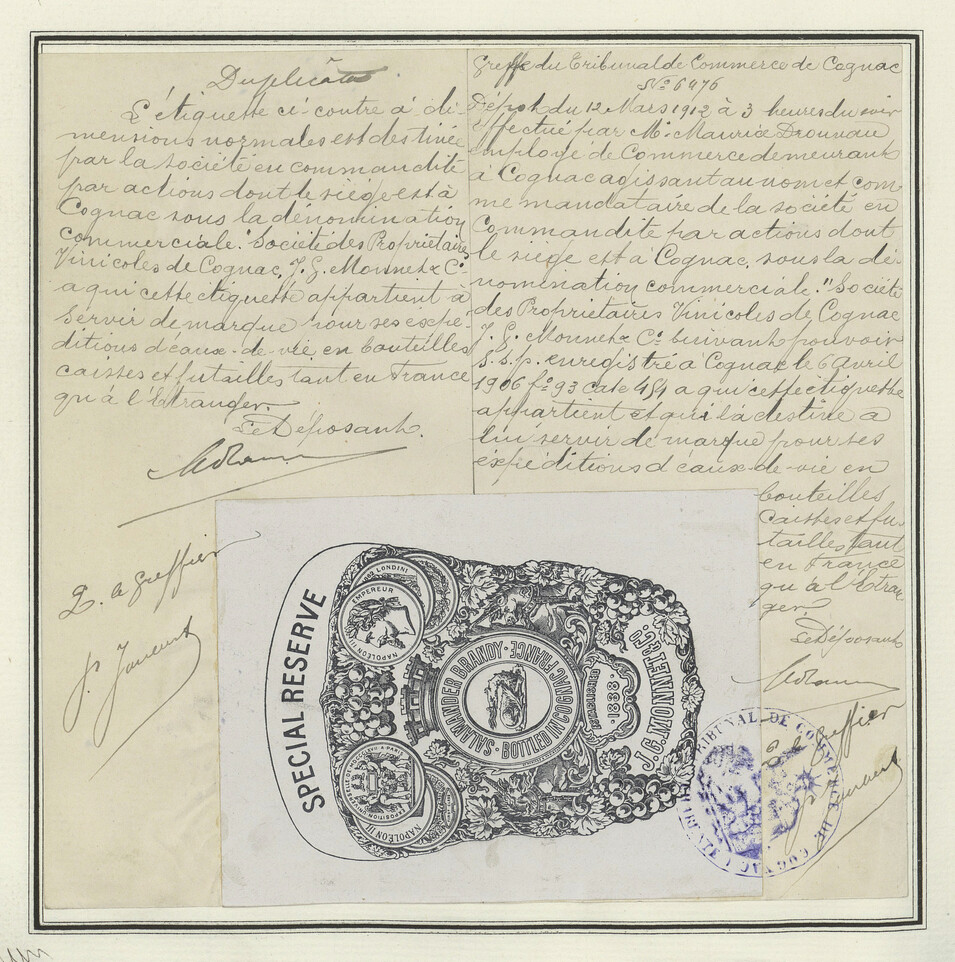 Duplicata
L'étiquette ci-contre à di-
mensions normales est destinée
par la société en commandité
par actions dont le siège est à
Cognac sous la dénomination
commerciale: "Société des Propriétaires
Vinicoles de Cognac, J. G. Monnet & Cº
a qui cette etiquette appartient à
servir de marque pour ses expé-
ditions d'eaux-de-vie en bouteilles
caisses et futailles tant en France
qu'à l'Etranger.
Le Déposant.
P. le Greffier
Greffe du Tribunal de Commerce de Cognac
Nº 6476
Dépôt du 12 Mars 1912 à 3 heures du soir
effectué par Mr. Maurice Drouneau
employé de Commerce demeurant
à Cognac agissant au nom et com-
me mandataire de la société en
Commandité par actions dont
le siège est à Cognac, sous la dé-
nomination commerciale: "Société
des Propriétaires Vinicoles de Cognac
J. G. Monnet & Cº suivant pouvoir
s.s.p. enregistré à Cognac le 6 avril
1906 fº 93 case 484 a qui cette etiquette
appartient et qui la destine a
lui servir de marque pour ses
expéditions d'eaux-de-vie en
bouteilles
caisses et fu-
tailles tant
en France
qu'à l'Etran-
ger.
Le Déposant
P. le Greffier
SPECIAL RESERVE
LONDINI
NAPOLEON III EMPEREUR
EXPOSITION UNIVERSELLE DE A PARIS
NAPOLEON III
SALAMANDER BRANDY
BOTTLED IN COGNAC·FRANCE
1838
J.G. MONNET & Cº
TRIBUNAL DE COMMERCE DE COGNAC